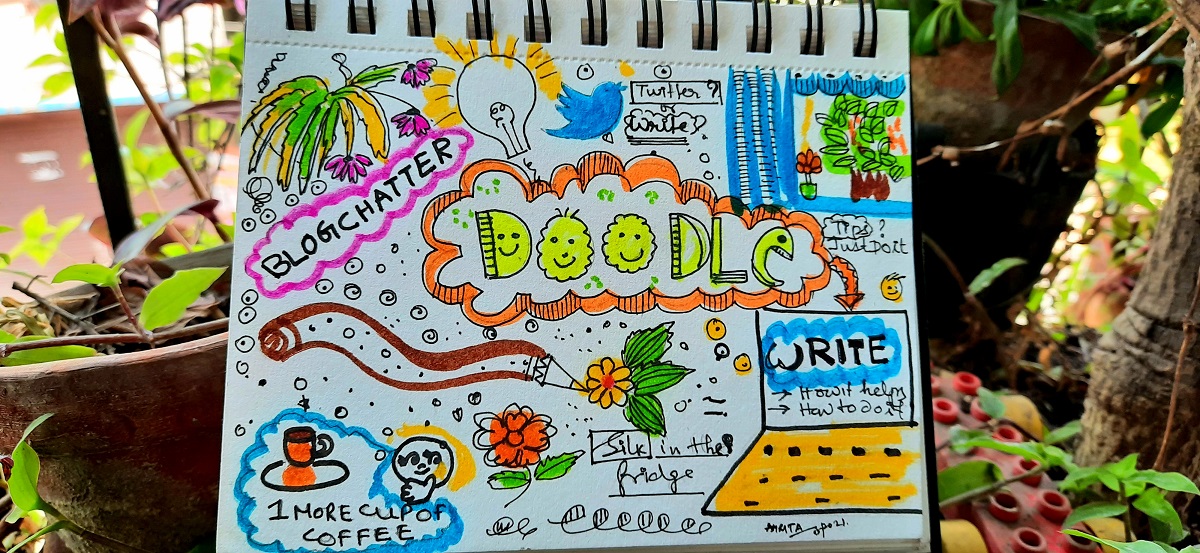 Twitter?
or
Write?
BLOGCHATTER
DOODLe
Tips?
Just Do it
WRITE
→ How it helps
→ How to do it
Silk in the
fridge
1 MORE CUP OF
COFFEE